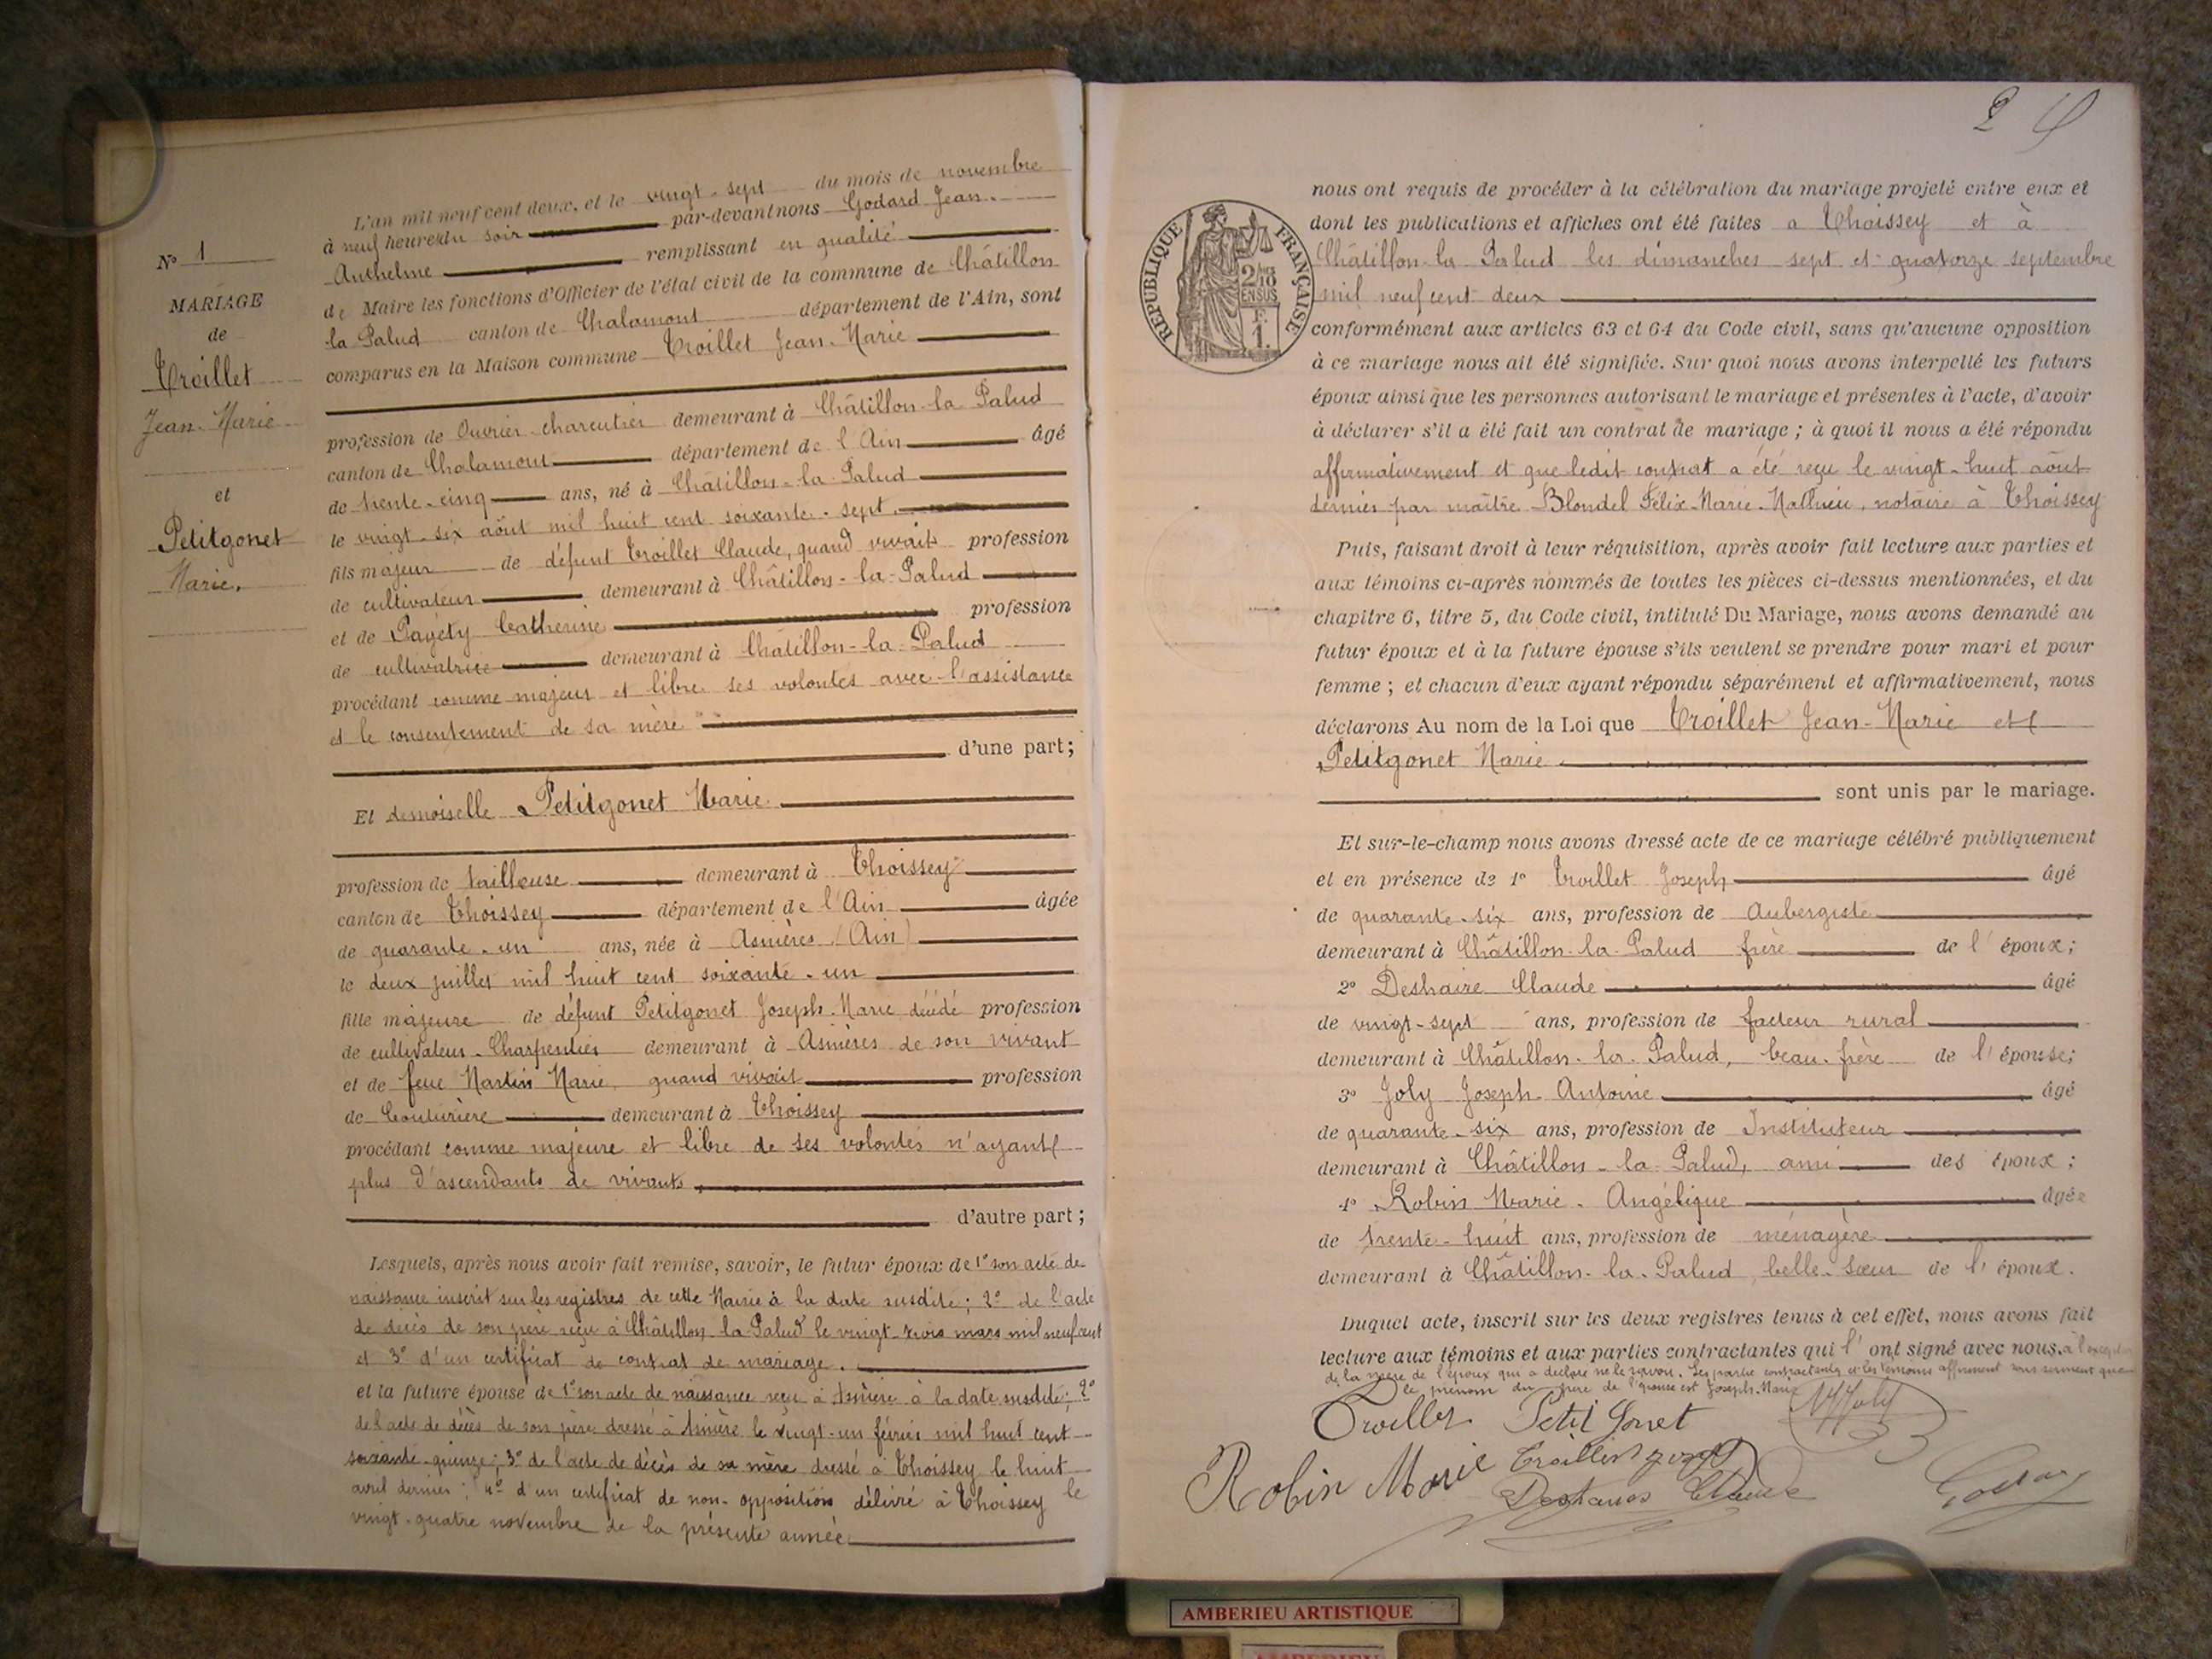 L'an mil neuf cent deux, et le vingt-sept du mois de novembre
à neuf heures du soir par-devant nous Godard Jean-
Anthelme remplissant en qualité
de Maire les fonctions d'Officier de l'état civil de la commune de Châtillon
la Palud canton de Chalamont département de l'Ain, sont
comparus en la Maison commune Troillet Jean-Marie
N° 1
MARIAGE
de
Troillet
Jean-Marie
et
Petitgonet
Marie.
profession de Ouvrier charcutier demeurant à Châtillon-la Palud
canton de Chalamont département de l'Ain âgé
de trente-cinq ans, né à Châtillon-la-Palud
le vingt-six août mil huit cent soixante-sept
fils majeur de défunt Troillet Claude, quand vivait profession
de cultivateur demeurant à Châtillon-la-Palud
et de Pagéty Catherine profession
de cultivatrice demeurant à Châtillon-la-Palud
procédant comme majeur et libre ses volontés avec l'assistance
et le consentement de sa mère
d'une part;
Et demoiselle Petitgonet Marie
profession de tailleuse demeurant à Thoissey
canton de Thoissey département de l'Ain âgée
de quarante-un ans, née à Asnières (Ain)
le deux juillet mil huit cent soixante-un
fille majeure de défunt Petitgonet Joseph-Marie décédé profession
de cultivateur-Charpentier demeurant à Asnières de son vivant
et de feue Martin Marie, quand vivait profession
de Couturière demeurant à Thoissey
procédant comme majeure et libre de ses volontés n'ayant
plus d'ascendants de vivants,
d'autre part;
Lesquels, après nous avoir fait remise, savoir, le futur époux de 1° son acte de
naissance inscrit sur les registres de cette Mairie à la date susdite; 2° de l'acte
de décès de son père reçu à Châtillon-la-Palud le vingt-trois mars mil neuf cent
et 3° d'un certificat de contrat de mariage.
et la future épouse de 1° son acte de naissance reçu à Asnière à la date susdite; 2°
de l'acte de décès de son père dressé à Asnière le vingt-un février mil huit cent
soixante-quinze; 3° de l'acte de décès de sa mère dressé à Thoissey le huit
avril dernier; 4° d'un certificat de non-opposition délivré à Thoissey le
vingt-quatre novembre de la présente année
2
RÉPUBLIQUE FRANÇAISE
2/10
EN SUS
F.
1.
nous ont requis de procéder à la célébration du mariage projeté entre eux et
dont les publications et affiches ont été faites a Thoissey et à
Châtillon-la Palud les dimanches sept et quatorze septembre
mil neuf cent deux
conformément aux articles 63 et 64 du Code civil, sans qu'aucune opposition
à ce mariage nous ait été signifiée. Sur quoi nous avons interpellé les futurs
époux ainsi que les personnes autorisant le mariage et présentes à l'acte, d'avoir
à déclarer s'il a été fait un contrat de mariage; à quoi il nous a été répondu
affirmativement et que ledit contrat a été reçu le vingt-huit août
dernier par maître Blondel Félix-Marie-Mathieu, notaire à Thoissey
Puis, faisant droit à leur réquisition, après avoir fait lecture aux parties et
aux témoins ci-après nommés de toutes les pièces ci-dessus mentionnées, et du
chapitre 6, titre 5, du Code civil, intitulé Du Mariage, nous avons demandé au
futur époux et à la future épouse s'ils veulent se prendre pour mari et pour
femme; et chacun d'eux ayant répondu séparément et affirmativement, nous
déclarons Au nom de la Loi que Troillet Jean-Marie et
Petitgonet Marie
sont unis par le mariage.
Et sur-le-champ nous avons dressé acte de ce mariage célébré publiquement
et en présence de 1° Troillet Joseph âgé
de quarante-six ans, profession de Aubergiste
demeurant à Châtillon-la-Palud frère de l'époux;
2° Deshaire Claude âgé
de vingt-sept ans, profession de facteur rural
demeurant à Châtillon-la-Palud, beau-frère de l'épouse;
3° Joly Joseph Antoine âgé
de quarante-six ans, profession de Instituteur
demeurant à Châtillon-la-Palud, ami des époux;
4° Robin Marie-Angélique âgée
de trente-huit ans, profession de ménagère
demeurant à Châtillon-la-Palud, belle-sœur de l'époux.
Duquel acte, inscrit sur les deux registres tenus à cet effet, nous avons fait
lecture aux témoins et aux parties contractantes qui l'ont signé avec nous, à l'exception
de la mère de l'époux qui a déclaré ne le savoir. Les partie contractantes et les témoins affirment sous serment que
le prénom du père de l'épouse est Joseph-Marie
Troillet Petit Gonet Joly
Robin Marie Troillet Deshaires Claude Godard
AMBERIEU ARTISTIQUE
AMBERIEU